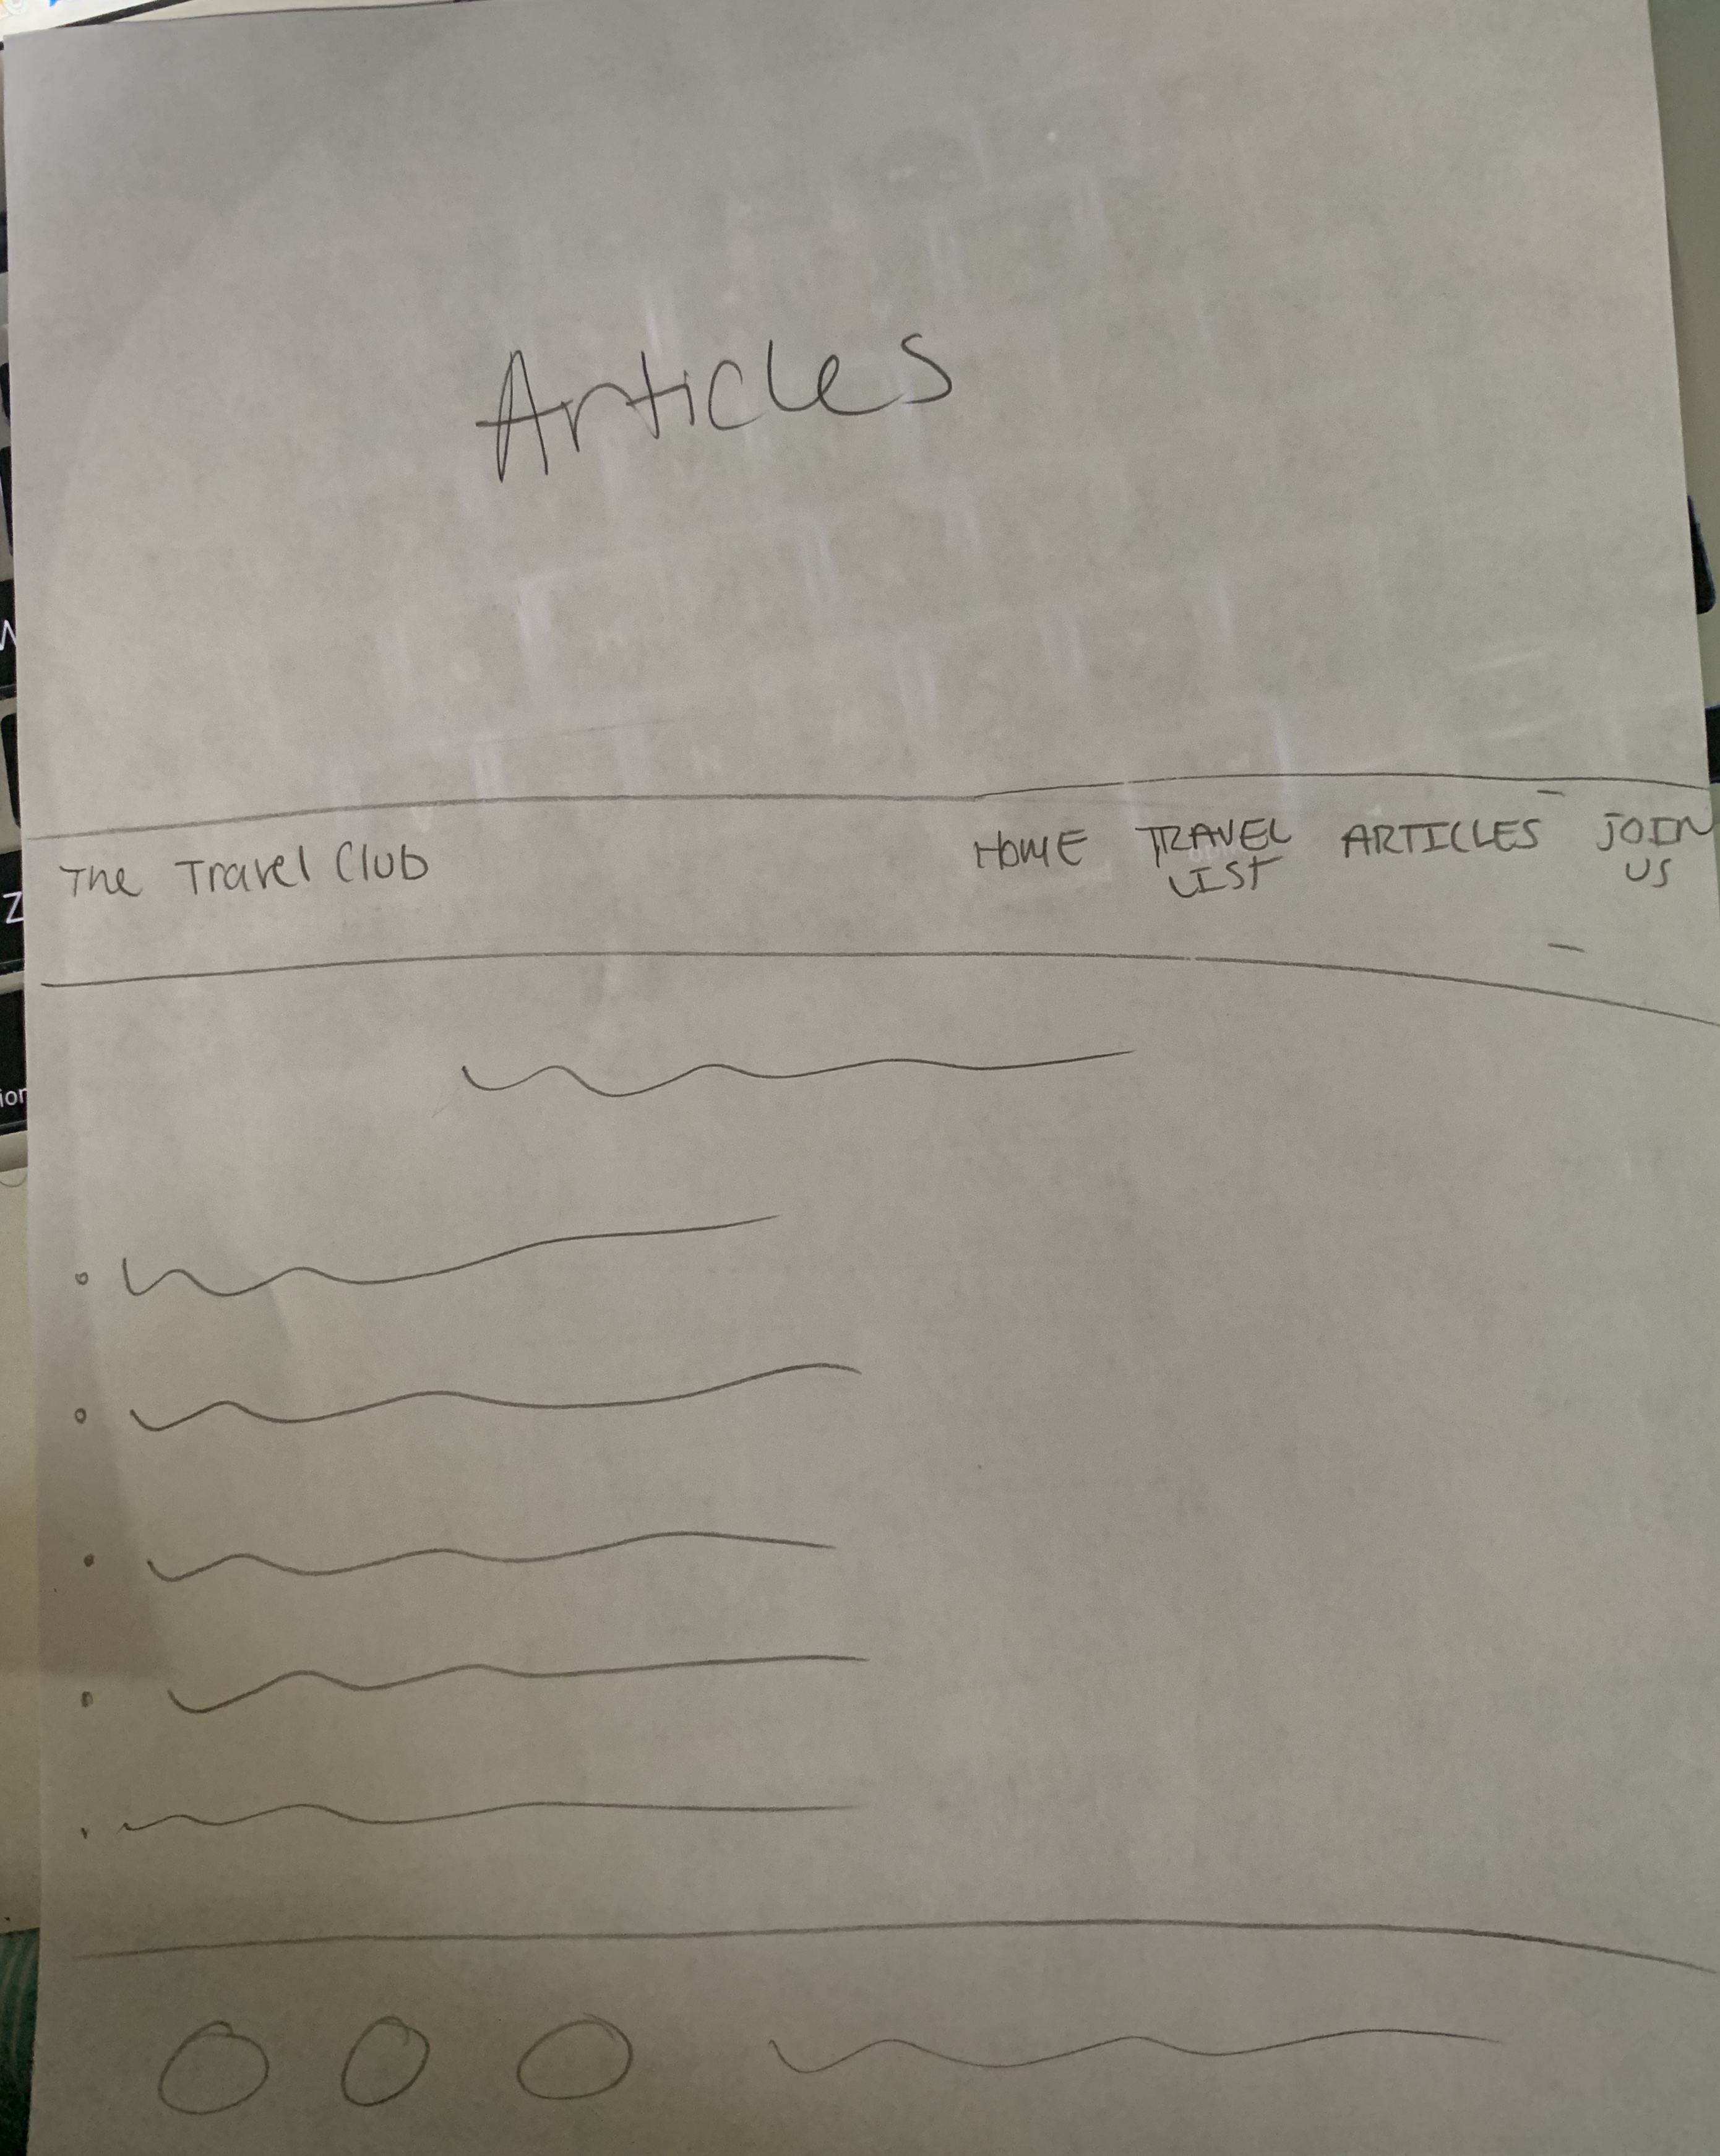 Articles
The Travel Club HOME TRAVEL LIST ARTICLES JOIN US